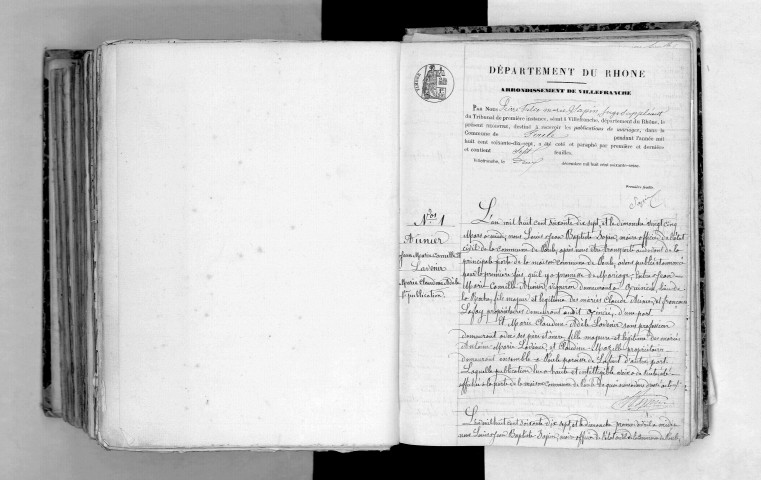 DÉPARTEMENT DU RHONE
ARRONDISSEMENT DE VILLEFRANCHE
PAR NOUS Marie Sapin Juge Suppléant
du Tribunal de première instance, séant à Villefranche, département du Rhône, le
présent registre, destiné à recevoir les publications de mariages, dans la
Commune de pendant l'année mil
huit cent soixante-dix-sept, a été coté et paraphé par première et dernière
et contient sept feuilles.
Villefranche, le décembre mil huit cent soixante-seize.
Première feuille
Sapin
Nos 1
Aunier
Jean Marie Camille
Lavenir
Marie Claudine Adèle
1re publication.
L'an mil huit cent soixante dix sept, et le dimanche vingt cinq
Mars à midi, nous Louis Jean Baptiste Sapin, maire officier de l'état
civil de la commune de, après nous être transporté au devant de la
principale porte de la maison commune de, avons publié et annoncé
pour la première fois, qu'il y a promesse de Mariage, Entre Jean
Marie Camille Aunier, vigneron demeurant à Quincié, lieu de
la, fils majeur et légitime des mariés Claude Aunier et
propriétaires demeurant audit Quincié, d'une part
Et Marie Claudine Adèle Lavenir sans profession
demeurant avec ses père et mère, fille majeure et légitime des mariés
Antoine Marie Lavenir, et Claudine propriétaires
demeurant ensemble à d'autre part.
Laquelle publication lue à haute et intelligible voix a de suite été
affichée à la porte de la maison commune de de quoi avons dressé acte
Sapin
L'an mil huit cent soixante dix sept et le dimanche premier avril à midi
nous Louis Jean Baptiste Sapin, maire officier de l'état civil de la commune de